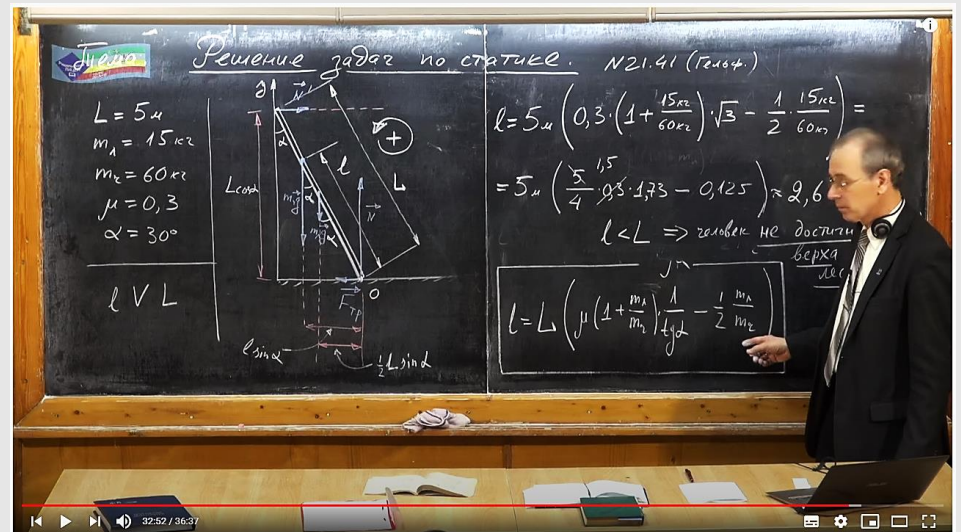 Тема
Решение задач по статике. N21.41 (Гельф.)
L = 5м
m₁ = 15кг
m₂ = 60кг
μ = 0,3
α = 30°
l V L
y
N'
α
l
L
+
Lcosα
m₂g
α
m₁g
α
N
Fтр
O
l sinα
½L sinα
l = 5м (0,3·(1 + 15кг/60кг)·√3 − 1/2 · 15кг/60кг) =
= 5м (5/4 · 0,3 · 1,73 − 0,125) ≈ 2,6
1,5
l < L ⇒ человек не достигн
верха
лес
l = L (μ(1 + m₁/m₂)·1/tgα − 1/2 m₁/m₂)
32:52 / 36:37